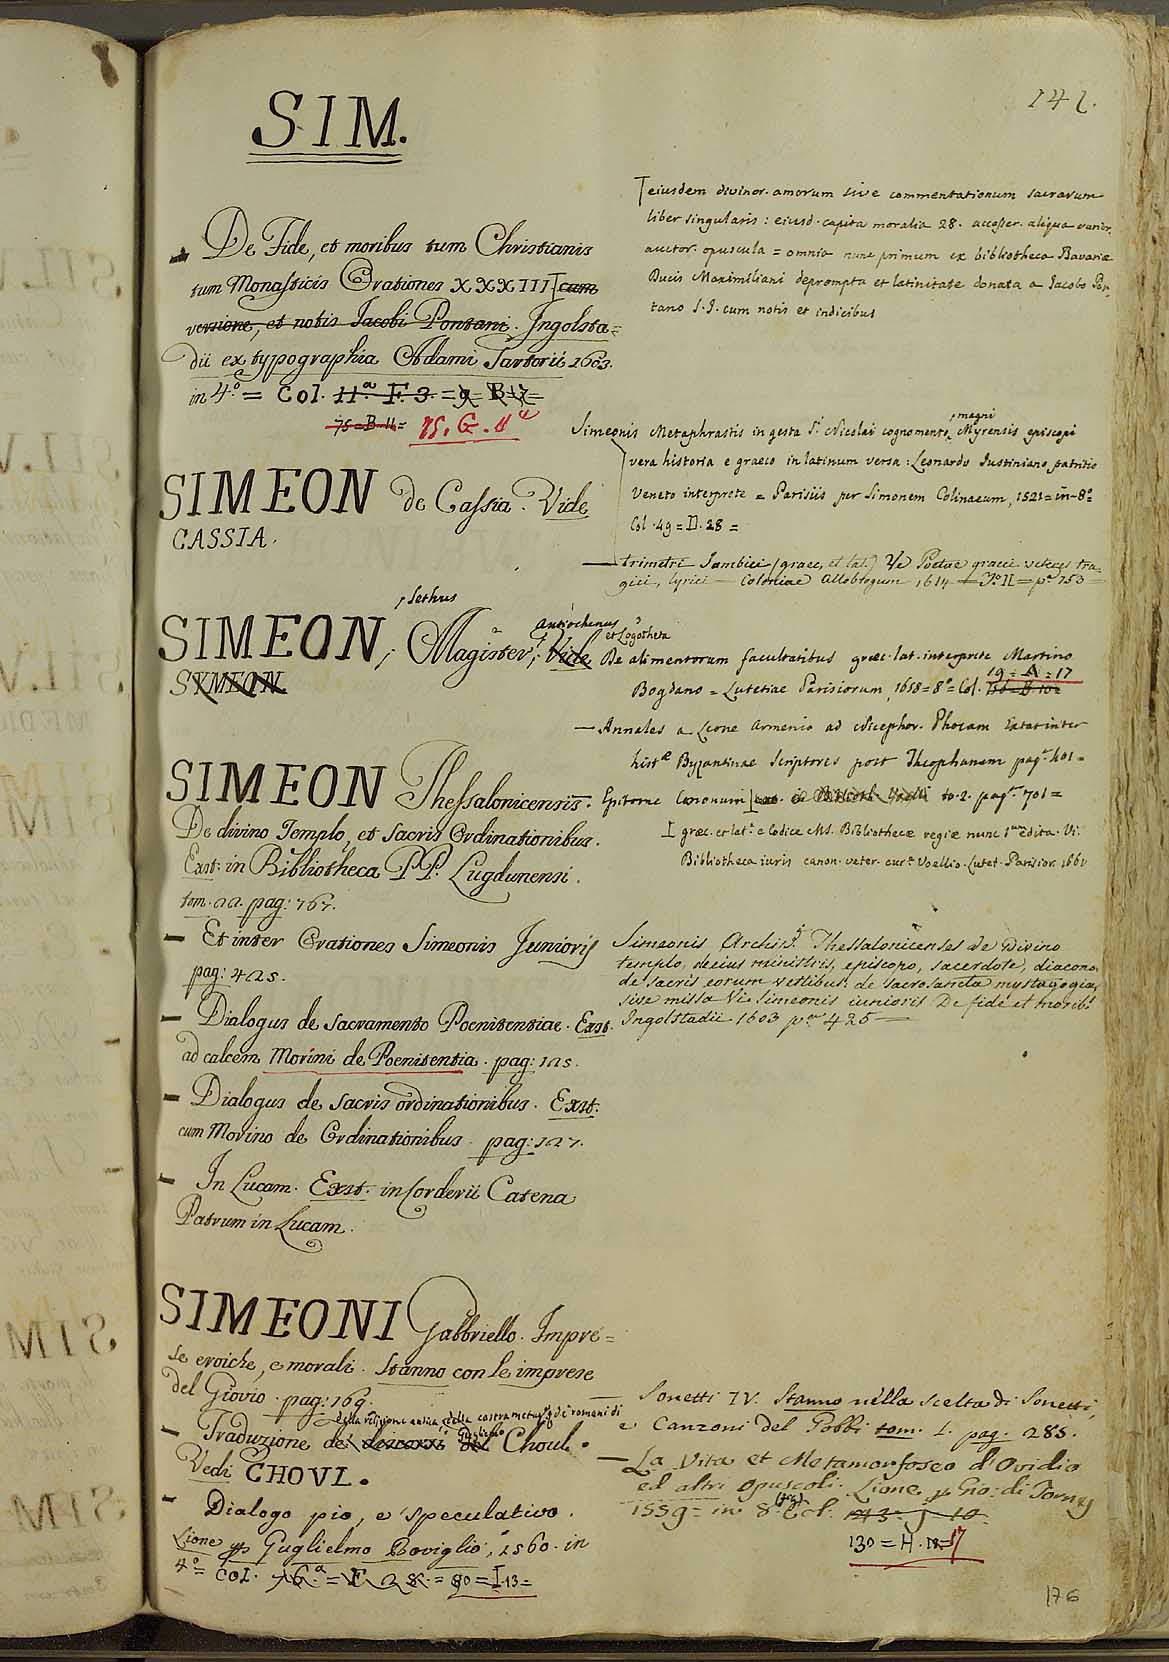 SIM.
141.
De Fide, et moribus tum Christianis
tum Monasticis Orationes XXXIII cum
versione, et notis Iacobi Pontani. Ingolsta=
dii ex typographia Adami Sartorii 1603.
in 4.º = Col. 11.ª F. 3. = 9 = B 17 =
75 = B. 11 = 75. G. 11
eiusdem divinor. amorum sive commentationum sacrarum
liber singularis : eiusd. capita moralia 28. accesser. aliqua varior.
auctor. opuscula = omnia nunc primum ex bibliotheca Bavariæ
Ducis Maximiliani deprompta et latinitate donata a Iacobo Pon-
tano S. I. cum notis et indicibus
SIMEON de Cassia. Vide
CASSIA.
Simeonis Metaphrastis in gesta S. Nicolai cognomento magni Myrensis episcopi
vera historia e graeco in latinum versa : Leonardo Iustiniano patritio
Veneto interprete = Parisiis per Simonem Colinaeum, 1521 = in-8º
Col. 49 = D. 28 =
— trimetri Iambici (graec. et lat.) Ve Poetae graeci veteres tra-
gici, lyrici — Coloniae Allobrogum, 1614 — Tº II = pª 753
, Sethus
SIMEON, Magister, Antiochenus et Logotheta Vide
SYMEON.
De alimentorum facultatibus græc. lat. interprete Martino
Bogdano = Lutetiae Parisiorum, 1658 = 8º = Col. 19 = A = 17
— Annales a Leone Armenio ad Nicephor. Phocam Extat inter
histæ Byzantinae Scriptores post Theophanem pag. 401 =
SIMEON Thessalonicensis.
De divino Templo, et sacris Ordinationibus.
Exst: in Bibliotheca P.P. Lugdunensi.
tom. 22. pag: 767.
Epitome Canonum to. 2. pag. 701 =
græc. et lat. e Codice MS. Bibliothecæ regiæ nunc 1um edita. Vi.
Bibliotheca iuris canon. veter. cura Voellio. Lutet. Parisior. 1661
— Et inter Orationes Simeonis Junioris
pag: 425.
Simeonis Archiep. Thessalonicenses de Divino
templo, de eius ministris, episcopo, sacerdote, diacono,
de sacris eorum vestibus, de sacrosancta mystagogia,
sive missa Vi. Simeonis iunioris De fide et morib.
Ingolstadii 1603 pag 425 —
— Dialogus de sacramento Poenitentiae. Exst.
ad calcem Morini de Poenitentia. pag: 125.
— Dialogus de sacris ordinationibus. Exst.
cum Morino de Ordinationibus. pag: 127.
— In Lucam. Exst. in Corderii Catena
Patrum in Lucam.
SIMEONI Gabbriello. Impre=
se eroiche, e morali. Stanno con le imprese
del Giovio. pag: 169.
della religione antica, della castrametaz. de' romani di
— Traduzione de' discorsi del Guglielmo Choul.
Vedi CHOUL.
— Dialogo pio, e speculativo.
Lione p. Guglielmo Roviglio, 1560. in
4º = Col. 76.ª = F. 28. = 90 = I. 13 =
— Sonetti IV. Stanno nella scelta di Sonetti,
e Canzoni del Gobbi tom. 1. pag. 285.
— La Vita et Metamorfoseo d'Ovidio
ed altri opuscoli. Lione, p. Gio: di Tornes
1559 = in 8º (fig.) Col.
130 = H. 17
176